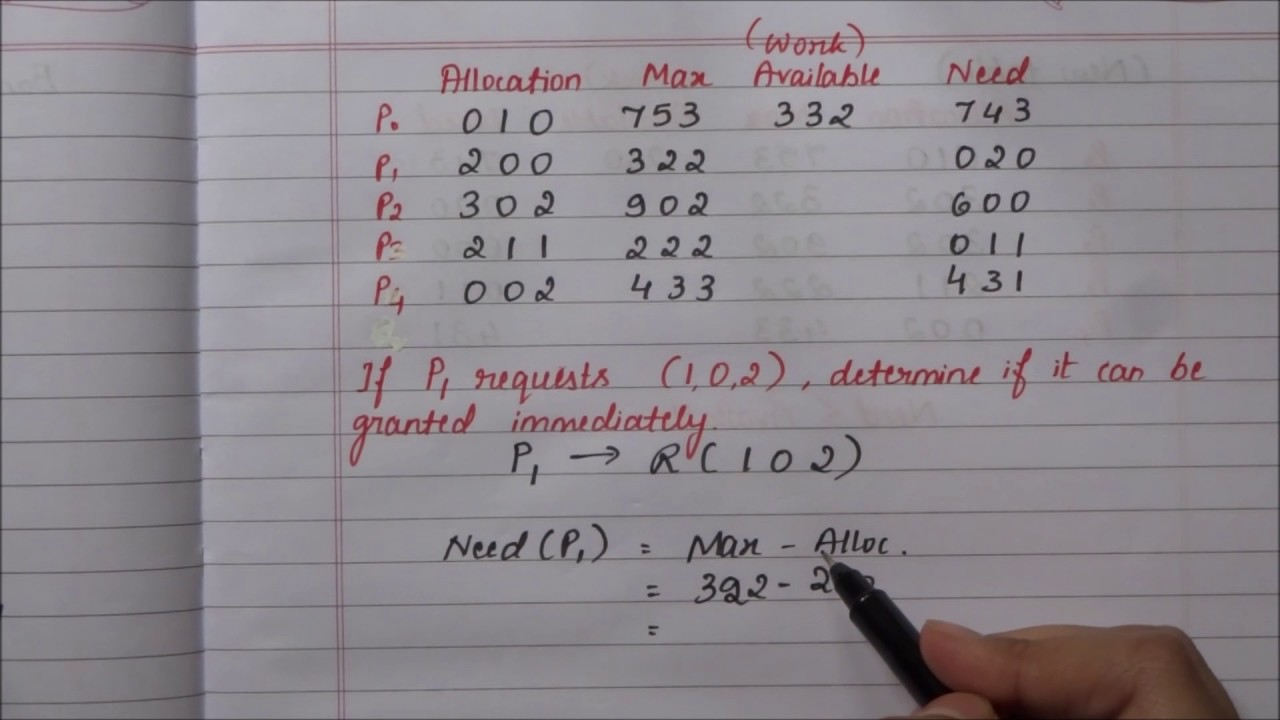 (Work)
Allocation Max Available Need
P0 0 1 0 7 5 3 3 3 2 7 4 3
P1 2 0 0 3 2 2 0 2 0
P2 3 0 2 9 0 2 6 0 0
P3 2 1 1 2 2 2 0 1 1
P4 0 0 2 4 3 3 4 3 1
If P1 requests (1,0,2), determine if it can be
granted immediately.
P1 → R ( 1 0 2 )
Need (P1) = Max - Alloc.
= 322 - 2
=